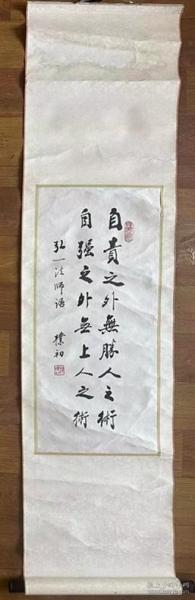 自責之外無勝人之術
自强之外無上人之術
弘一法师语 樸初